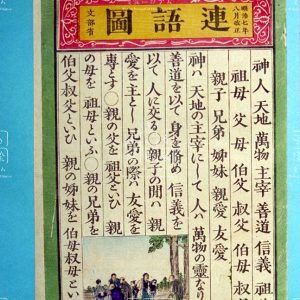 連語圖
明治七年
八月改正
文部省
神人 天地 萬物 主宰 善道 信義 祖
祖母 父母 伯父 叔父 伯母 叔
親子 兄弟 姉妹 親愛 友愛
神ハ 天地の主宰にして 人ハ 萬物の靈なり
善道を以て 身を脩め 信義を
以て 人に交る○ 親子の間ハ 親
愛を主とし 兄弟の際ハ 友愛を
專とす○ 親の父を 祖父といひ 親
の母を 祖母といふ○ 親の兄弟を
伯父叔父といひ 親の姉妹を 伯母叔母とい